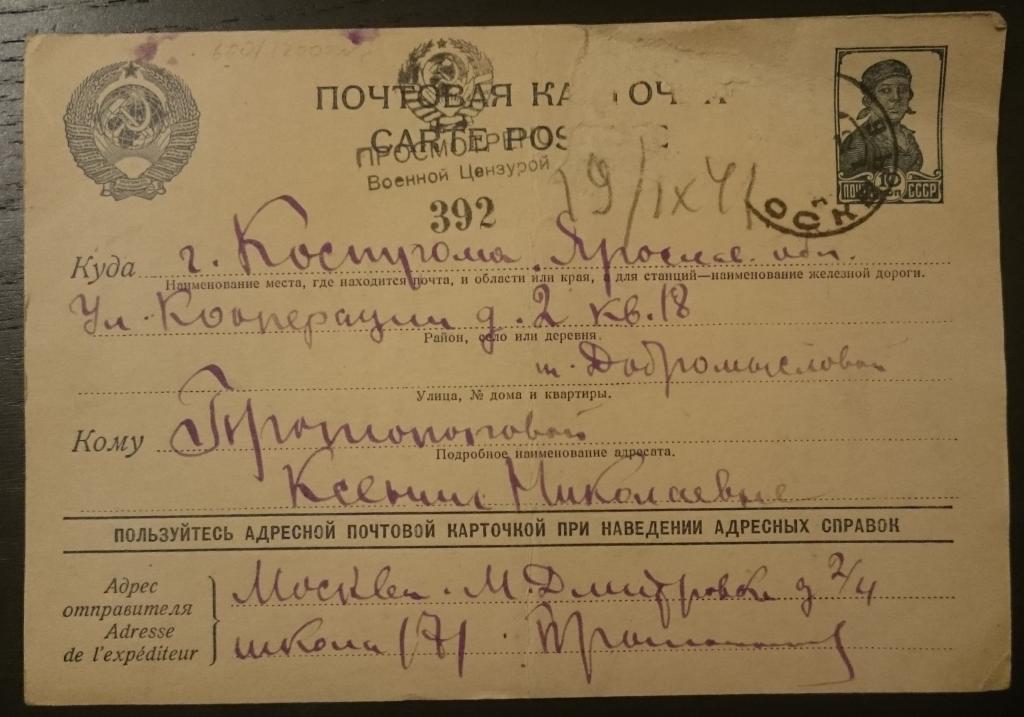 ПОЧТОВАЯ КА ТОЧКА
CARTE POS E
ПРОСМОТРЕНО
Военной Цензурой
392
9/IX 41
ПОЧТ 10 КОП СССР
МОСКВА
Куда г. Кострома Яросл. обл.
Наименование места, где находится почта, и области или края, а для станций—наименование железной дороги.
Ул. Кооперации д. 2 кв. 18
Район, село или деревня.
Добромысловой
Улица, № дома и квартиры.
Кому Протопоповой
Подробное наименование адресата.
Ксении Николаевне
ПОЛЬЗУЙТЕСЬ АДРЕСНОЙ ПОЧТОВОЙ КАРТОЧКОЙ ПРИ НАВЕДЕНИИ АДРЕСНЫХ СПРАВОК
Адрес отправителя
Adresse de l'expéditeur
Москва. М. Дмитровка д 2/4
школа